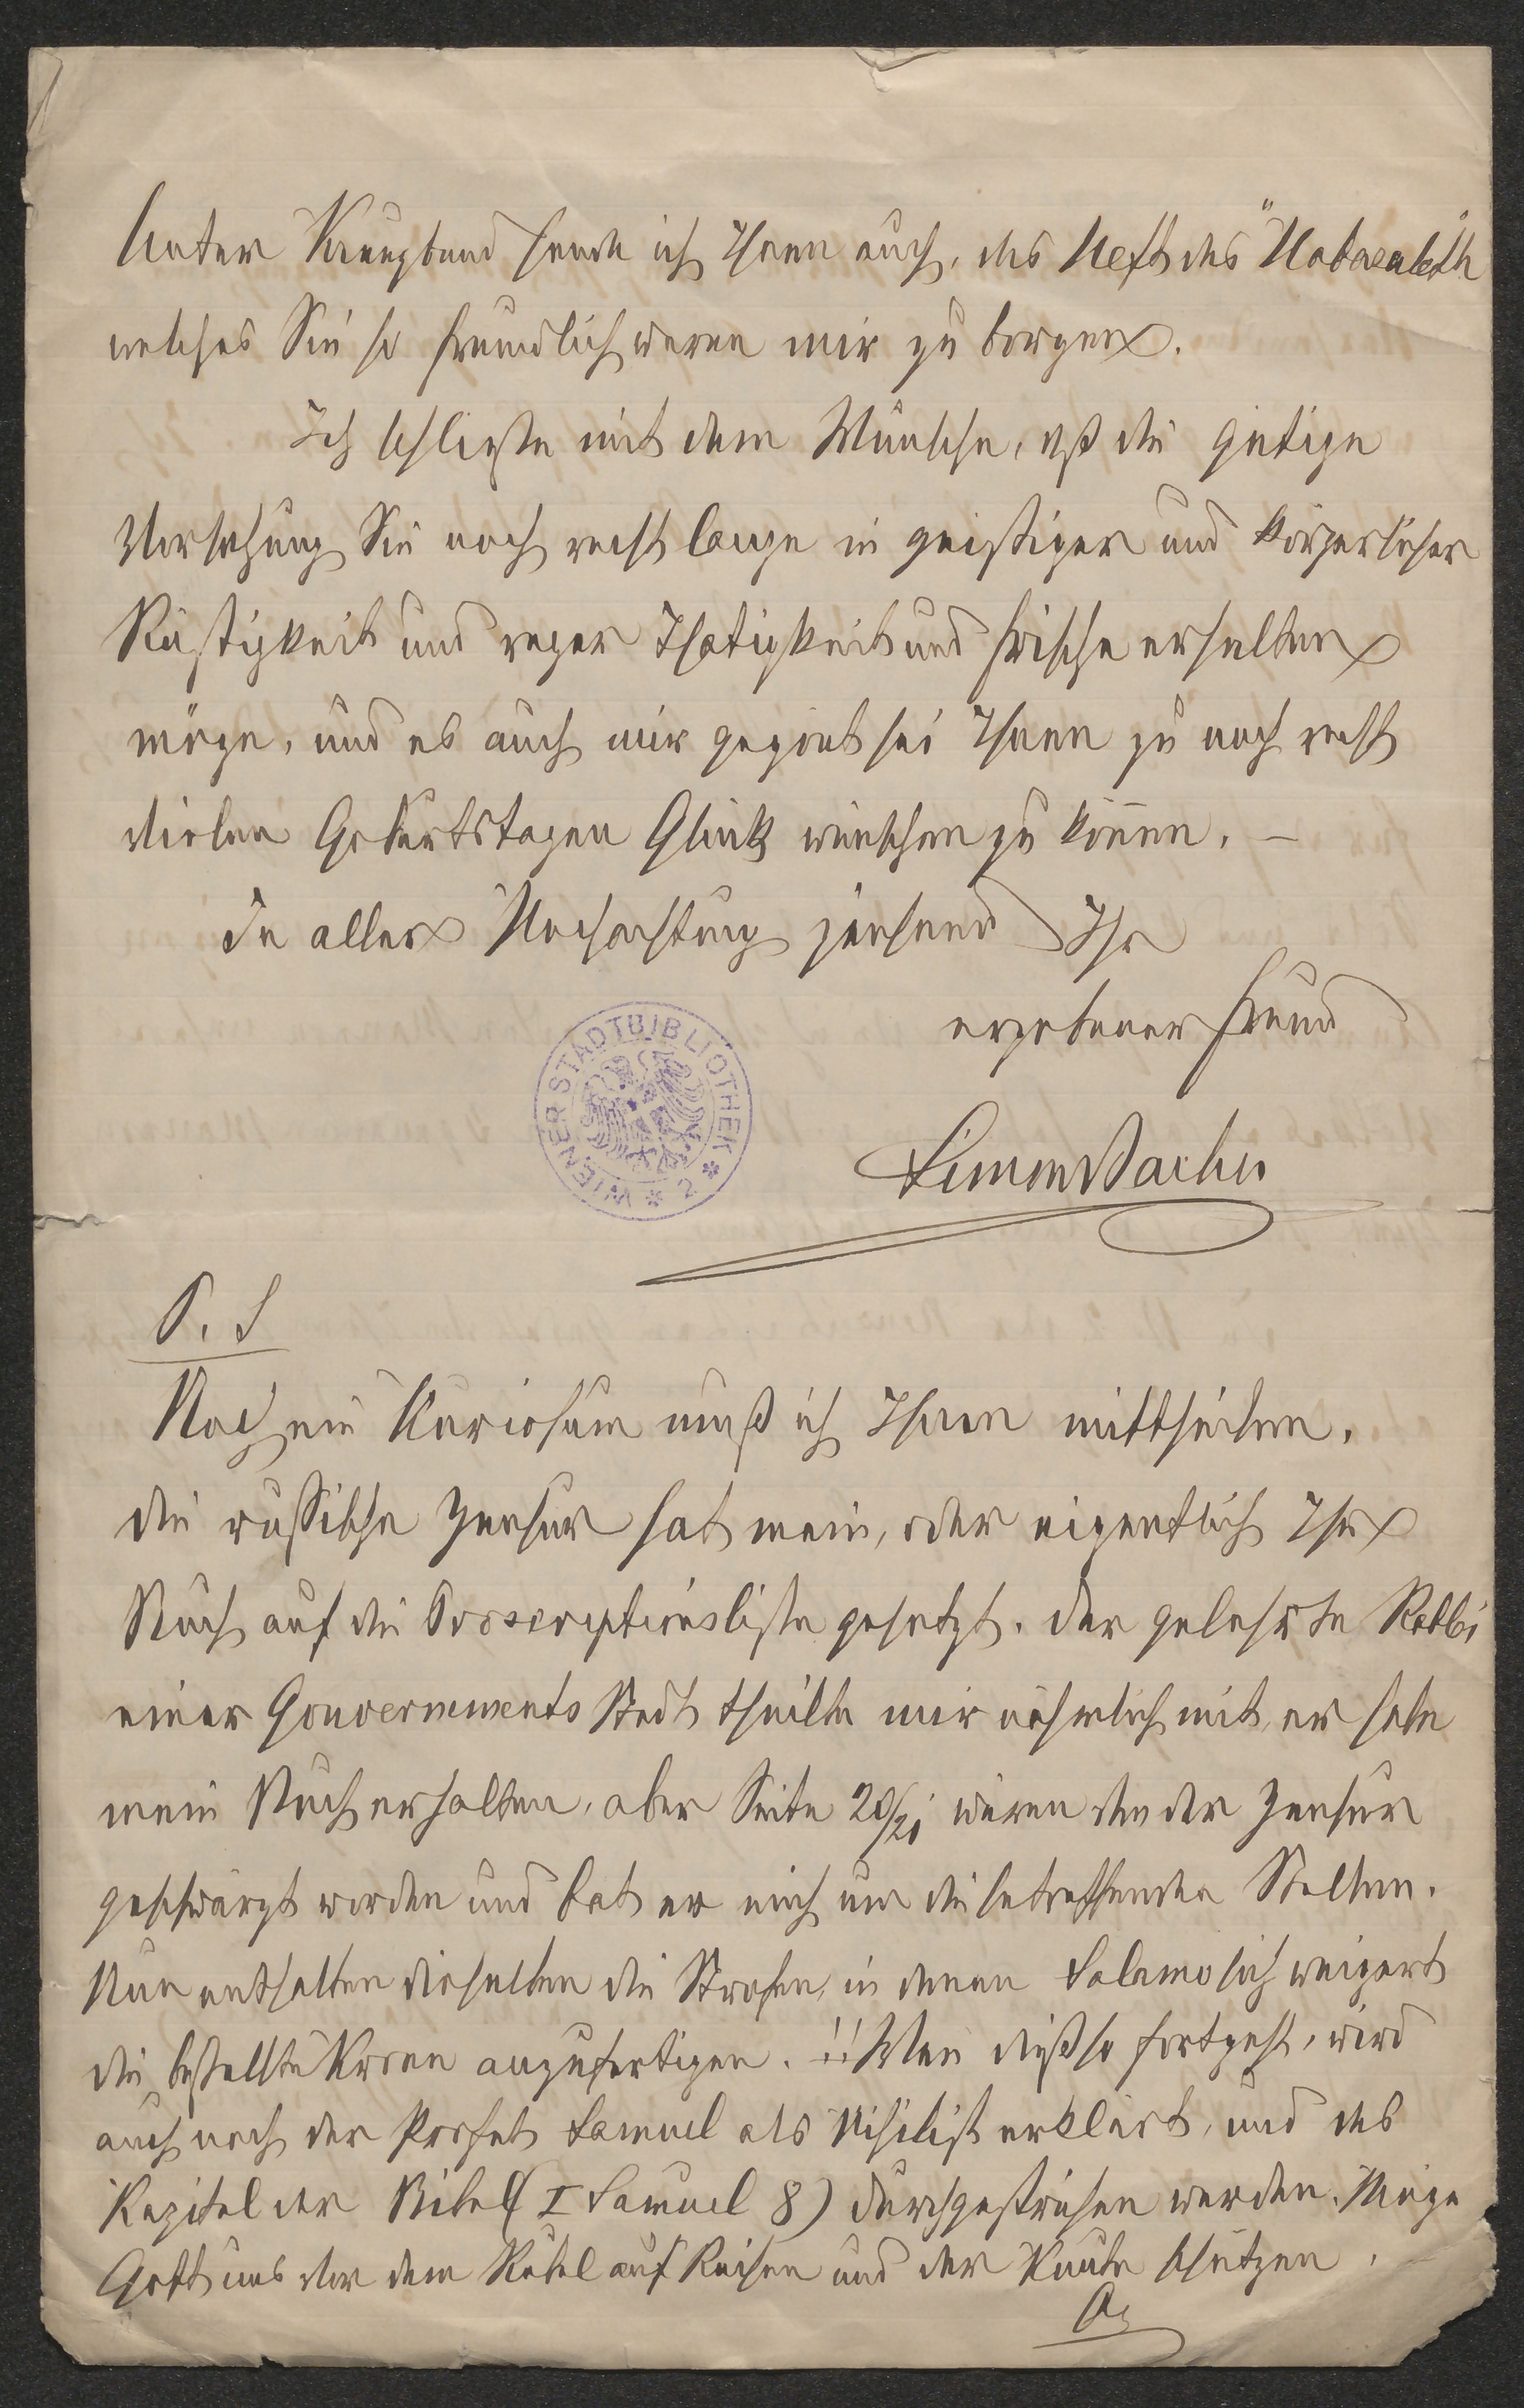 Unter Kreuzband sende ich Ihnen auch, das Heft des "Habazeleth"
welches Sie so freundlich waren mir zu borgen.
Ich schließe mit dem Wunsche, daß die gütige
Vorsehung Sie noch recht lange in geistiger und körperlicher
Rüstigkeit und reger Thätigkeit und Frische erhalten
möge, und es auch mir gegönt sei Ihnen zu noch recht
vielen Geburtstagen Glück wünschen zu können. –
In aller Hochachtung zeichnend Ihr
ergebener Freund
Simon Bacher
WIENER STADTBIBLIOTHEK * 2 *
P. S
Noch ein Kuriosum muß ich Ihnen mittheilen.
die russische Zensur hat mein, oder eigentlich Ihr
Buch auf die Proscriptionsliste gesetzt. der gelehrte Rabbi
einer Gouvernements Stadt theilte mir nähmlich mit, er habe
mein Buch erhalten, aber Seite 20/21 wären von der Zensur
geschwärzt worden und bat er mich um die betreffenden Stellen.
Nun enthalten dieselben die Strofen, in denen Salamo sich weigert
die bestellte Krone anzufertigen. !! Wenn dieß so fortgeht, wird
auch noch der Profet Samuel als Nihilist erklärt, und das
Kapitel der Bibel (I Samuel 8) durchgestrichen werden. Möge
Gott uns vor dem Rubel auf Reisen und der Knute schützen.